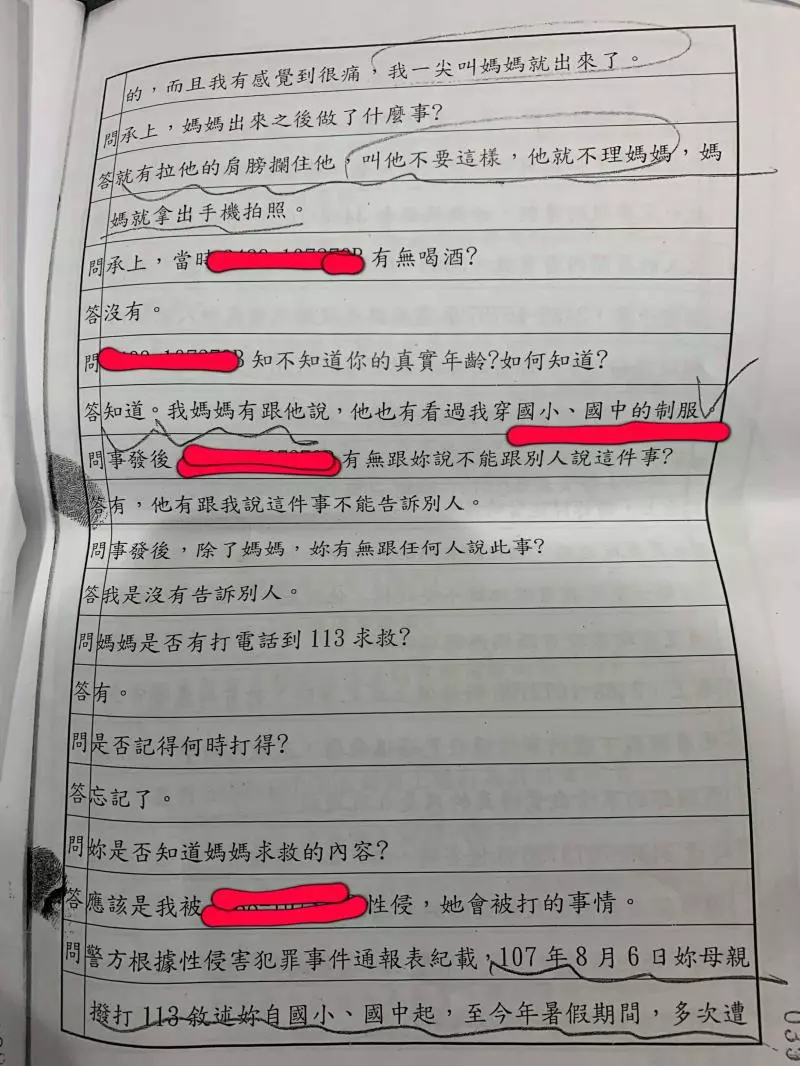 的，而且我有感覺到很痛，我一尖叫媽媽就出來了。
問承上，媽媽出來之後做了什麼事?
答就有拉他的肩膀攔住他，叫他不要這樣，他就不理媽媽，媽
媽就拿出手機拍照。
問承上，當時 有無喝酒?
答沒有。
問 知不知道你的真實年齡?如何知道?
答知道。我媽媽有跟他說，他也有看過我穿國小、國中的制服。
問事發後 有無跟妳說不能跟別人說這件事?
答有，他有跟我說這件事不能告訴別人。
問事發後，除了媽媽，妳有無跟任何人說此事?
答我是沒有告訴別人。
問媽媽是否有打電話到 113 求救?
答有。
問是否記得何時打得?
答忘記了。
問妳是否知道媽媽求救的內容?
答應該是我被 性侵，她會被打的事情。
問警方根據性侵害犯罪事件通報表紀載，107 年 8 月 6 日妳母親
撥打 113 敘述妳自國小、國中起，至今年暑假期間，多次遭